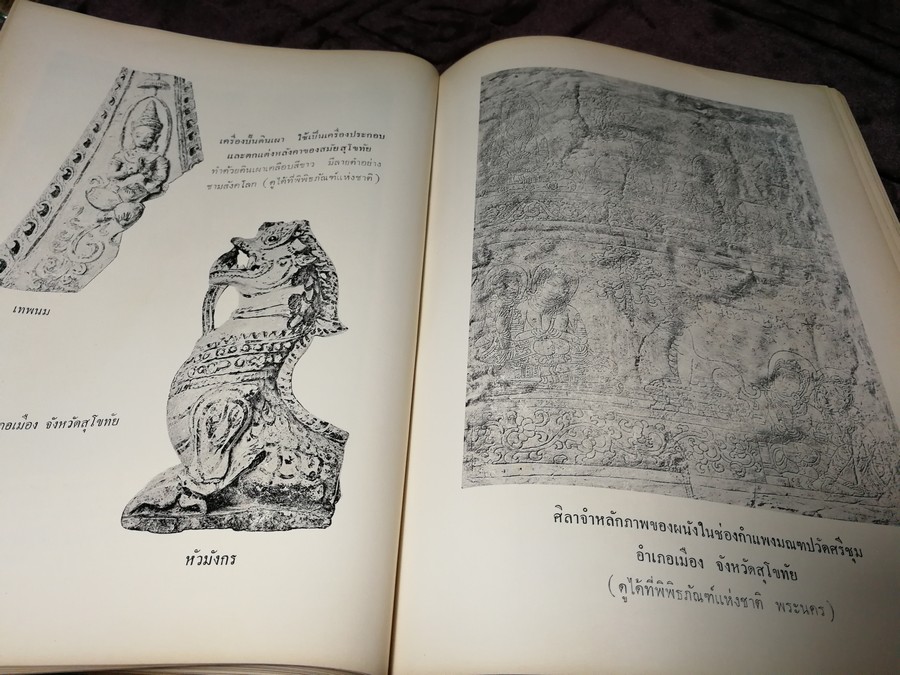 เครื่องปั้นดินเผา ใช้เป็นเครื่องประกอบ
และตกแต่งหลังคาของสมัยสุโขทัย
ทำด้วยดินเผาเคลือบสีขาว มีลายดำอย่าง
ชามสังคโลก (ดูได้ที่พิพิธภัณฑ์แห่งชาติ)
เทพนม
เมือง จังหวัดสุโขทัย
หัวมังกร
ศิลาจำหลักภาพของผนังในช่องกำแพงมณฑปวัดศรีชุม
อำเภอเมือง จังหวัดสุโขทัย
(ดูได้ที่พิพิธภัณฑ์แห่งชาติ พระนคร)